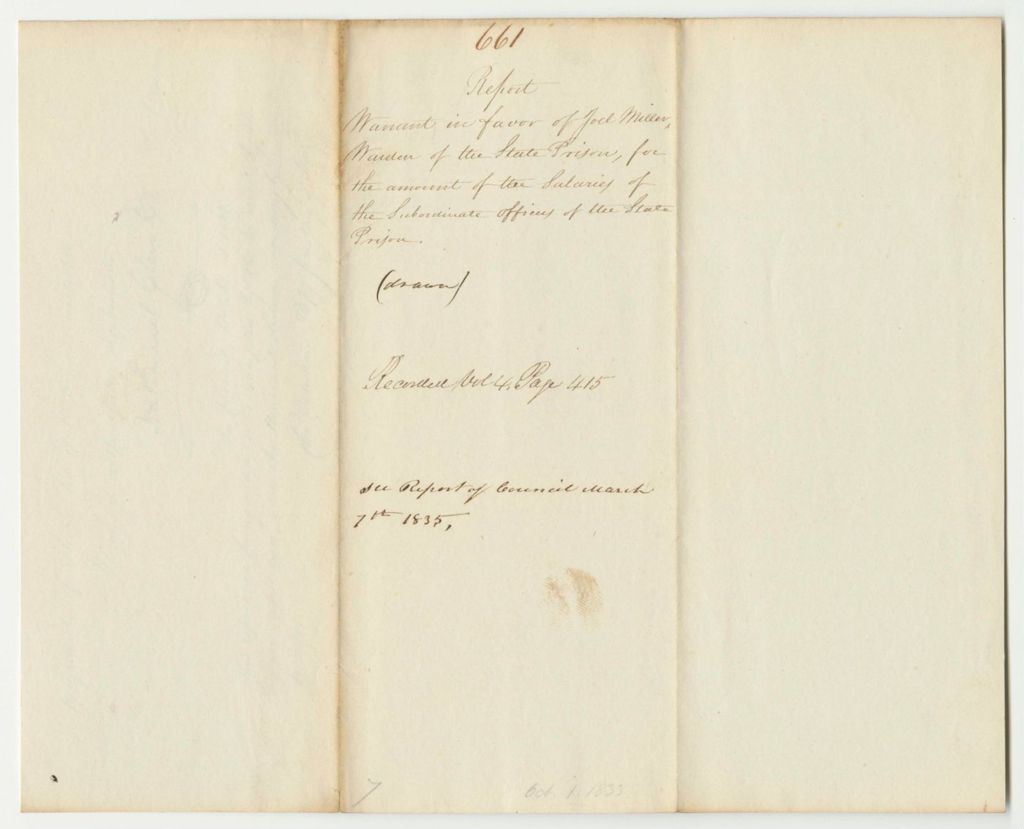 661
Report
Warrant in favor of Joel Miller,
Warden of the State Prison, for
the amount of the Salaries of
the Subordinate officers of the State
Prison.
(drawn)
Recorded Vol 4, Page 415
see Report of Council March
7th 1835,
7 Oct. 1. 1833